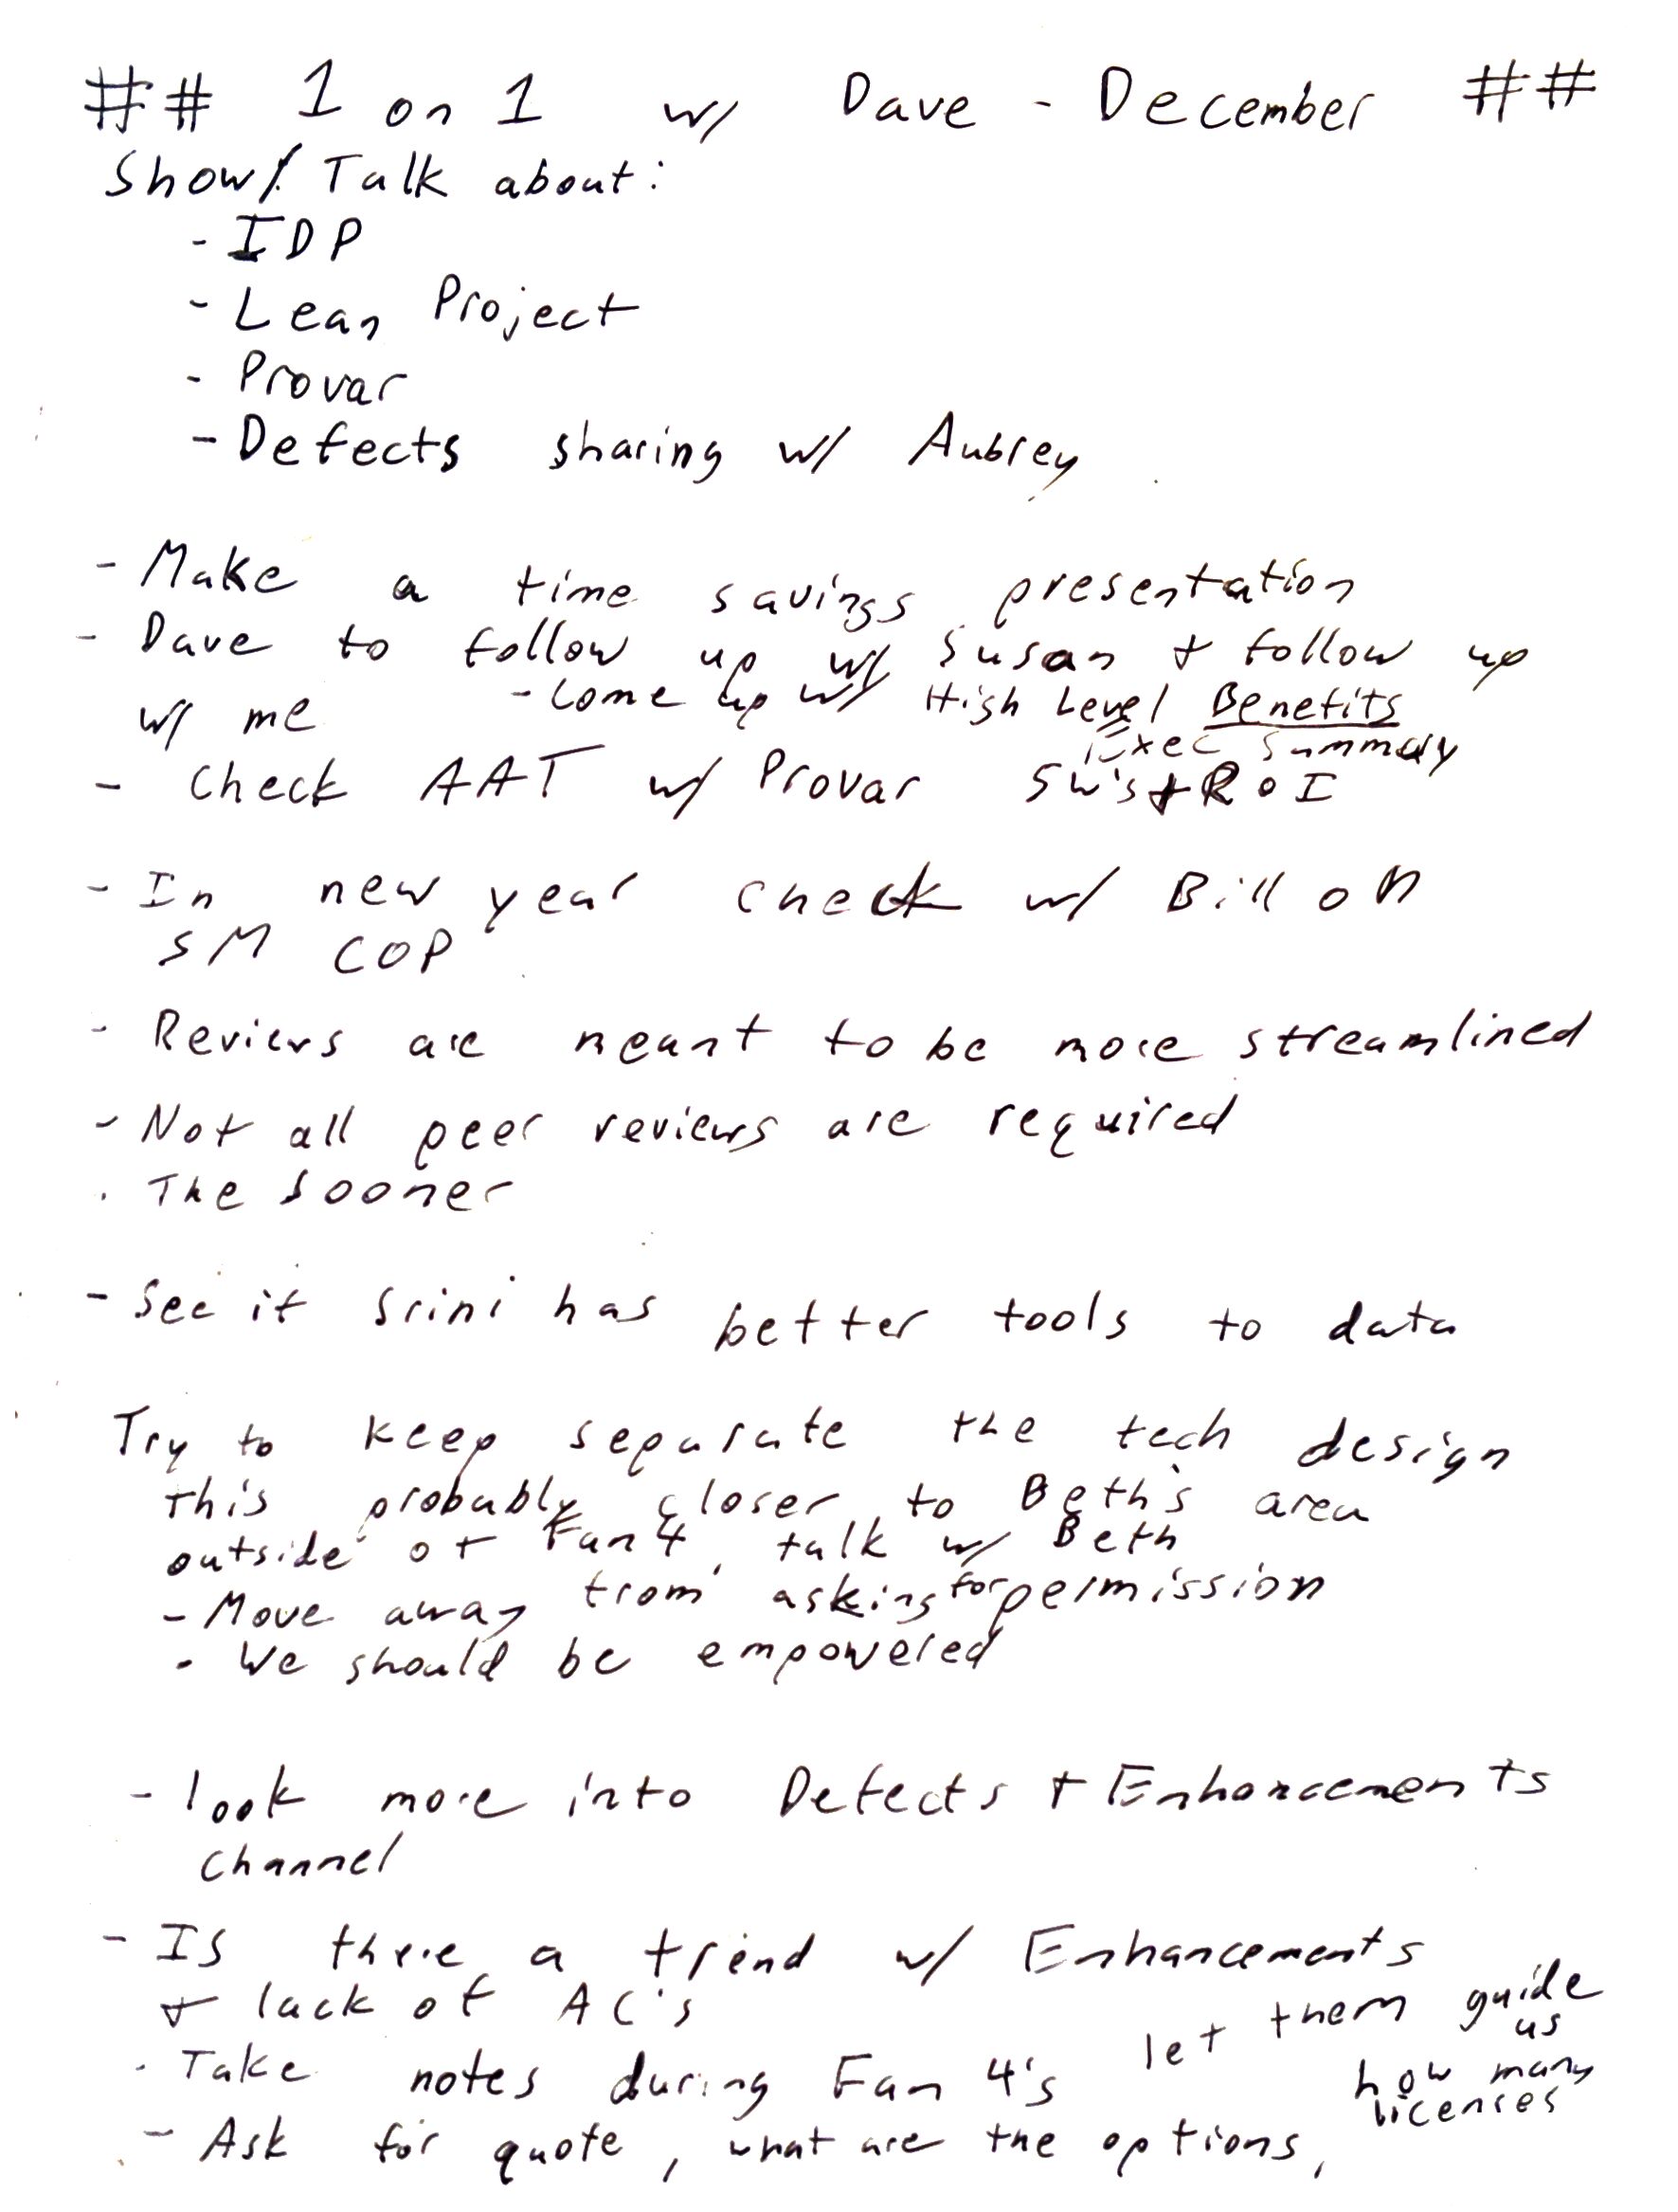 ## 1 on 1 w/ Dave - December ##
Show/ Talk about:
- IDP
- Lean Project
- Provar
- Defects sharing w/ Aubrey
- Make a time savings presentation
- Dave to follow up w/ Susan + follow up
w/ me - Come up w/ High Level Benefits
Exec Summary
- Check AAT w/ Provar 5W's + ROI
- In new year check w/ Bill on
SM COP
- Reviews are meant to be more streamlined
- Not all peer reviews are required
- The sooner
- See if Srini has better tools to data
Try to keep separate the tech design
this probably closer to Beth's area
outside of Fan 4, talk w/ Beth
- Move away from asking for permission
- We should be empowered
- look more into Defects + Enhancements
channel
- Is there a trend w/ Enhancements
+ lack of AC's
- Take notes during Fan 4's
- Ask for quote, what are the options,
let them guide
us
how many
licenses